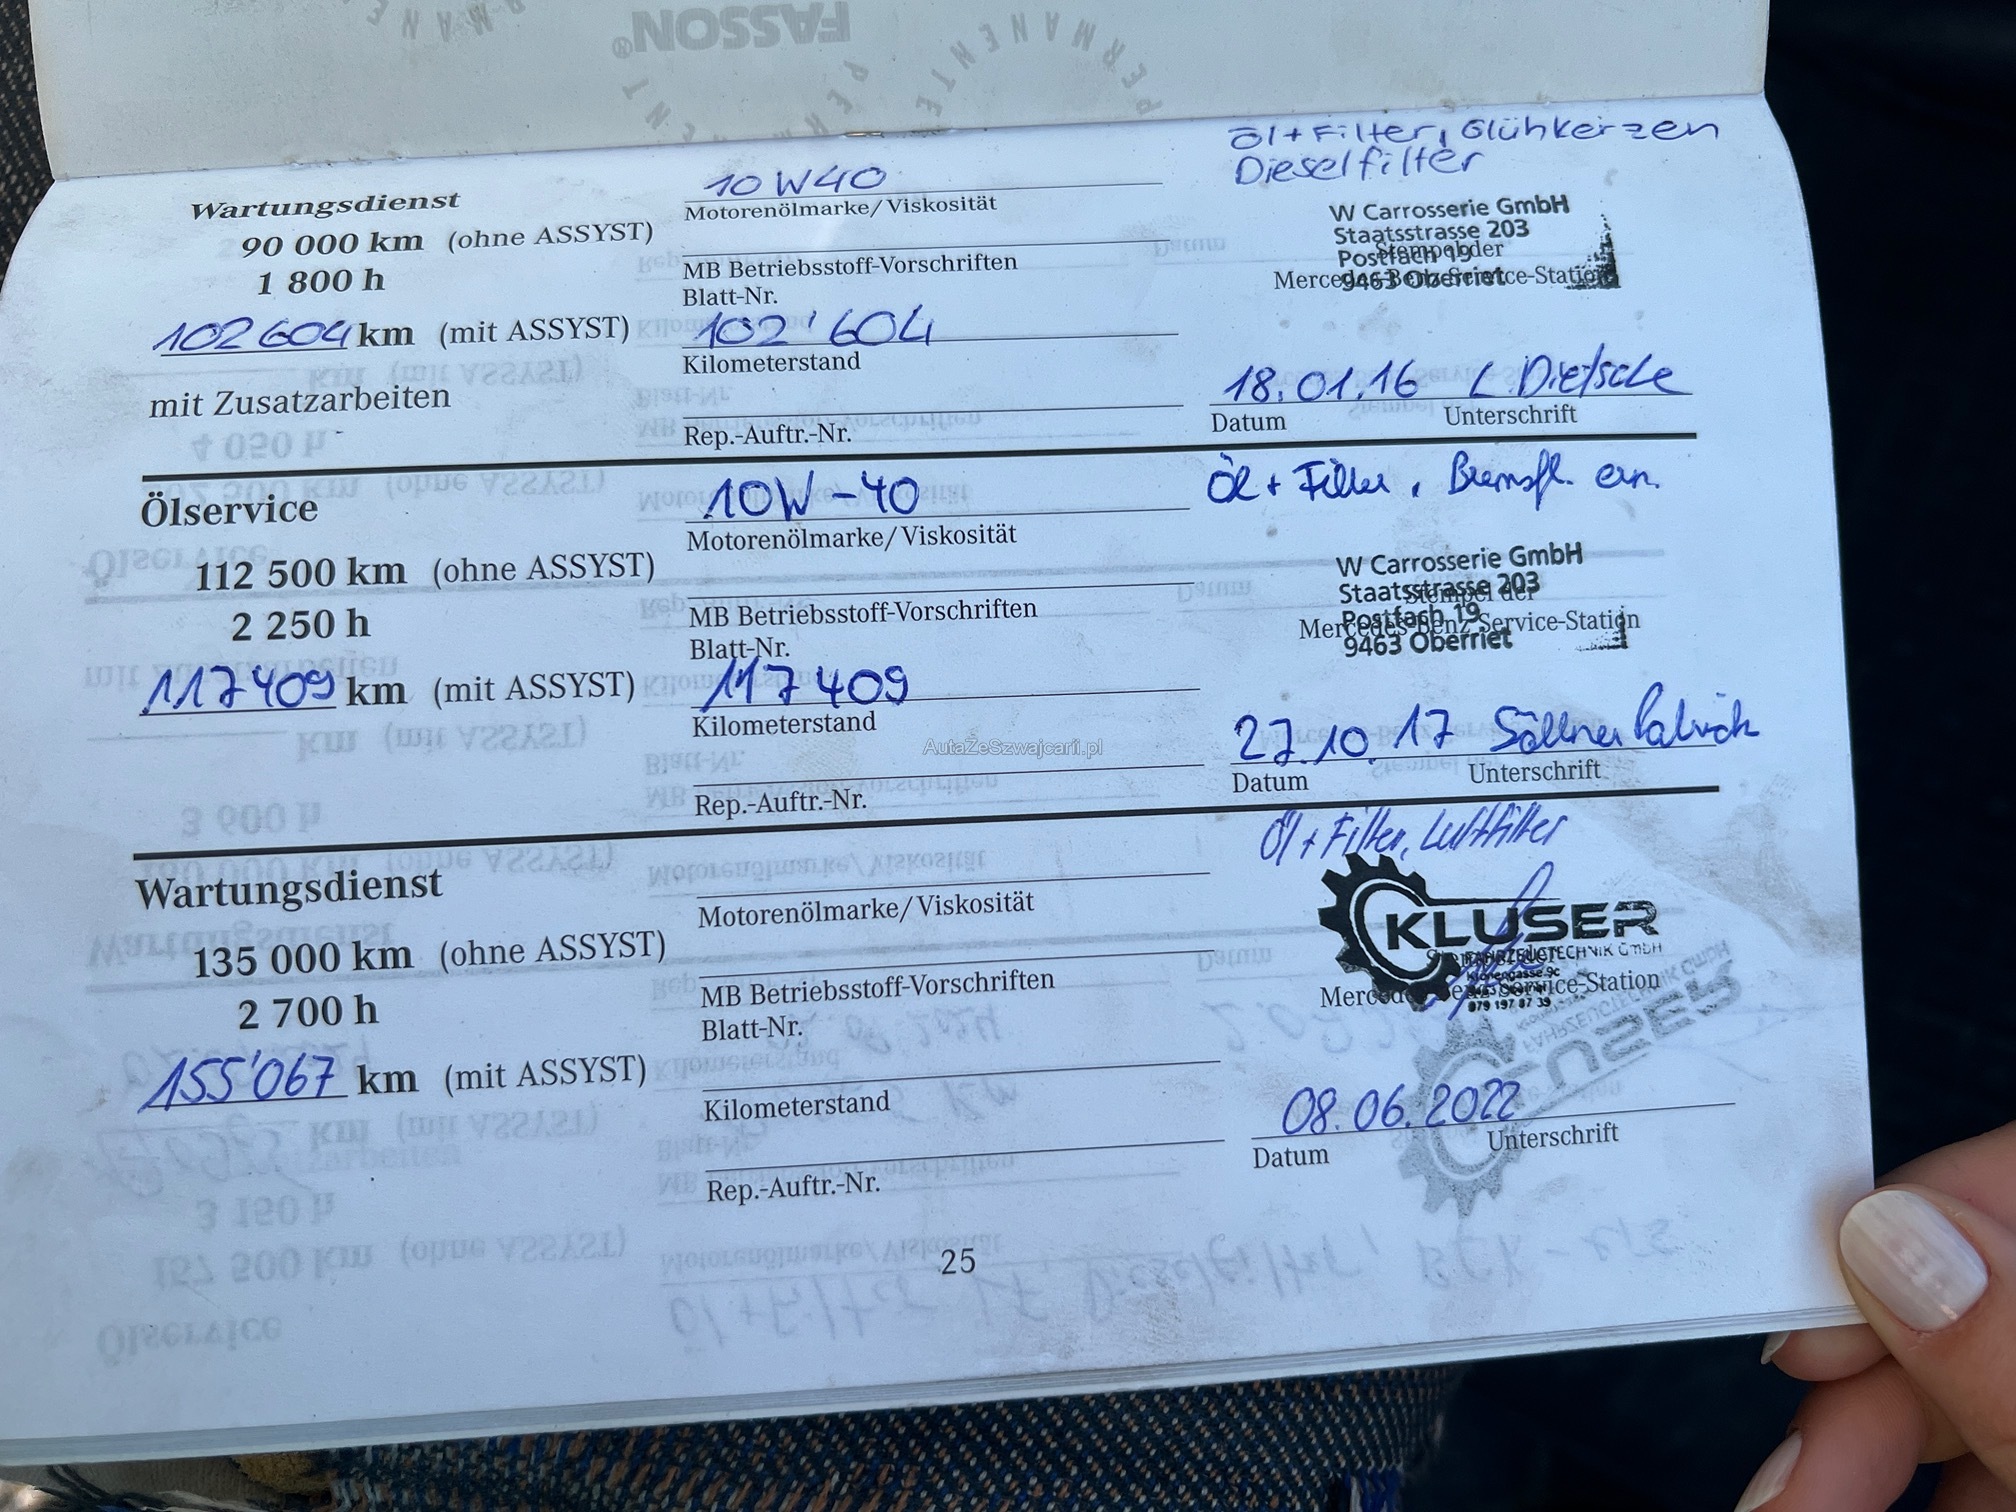 FASSON®
PERMANENT
PERMANENTE
Wartungsdienst
90 000 km (ohne ASSYST)
1 800 h
102 604 km (mit ASSYST)
mit Zusatzarbeiten
10W40
Motorenölmarke/Viskosität
MB Betriebsstoff-Vorschriften
Blatt-Nr.
102'604
Kilometerstand
Rep.-Auftr.-Nr.
Öl + Filter, Glühkerzen
Dieselfilter
W Carrosserie GmbH
Staatsstrasse 203
Postfach 19
9463 Oberriet
Stempel der
Mercedes-Benz Service-Station
18.01.16 L Dietsche
Datum Unterschrift
Ölservice
112 500 km (ohne ASSYST)
2 250 h
117409 km (mit ASSYST)
10W-40
Motorenölmarke/Viskosität
MB Betriebsstoff-Vorschriften
Blatt-Nr.
117409
Kilometerstand
Rep.-Auftr.-Nr.
Öl + Filter, Bremsfl. ern.
W Carrosserie GmbH
Staatsstrasse 203
Postfach 19
9463 Oberriet
Stempel der
Mercedes-Benz Service-Station
27.10.17
Datum Unterschrift
AutaZeSzwajcarii.pl
Wartungsdienst
135 000 km (ohne ASSYST)
2 700 h
155'067 km (mit ASSYST)
Motorenölmarke/Viskosität
MB Betriebsstoff-Vorschriften
Blatt-Nr.
Kilometerstand
Rep.-Auftr.-Nr.
Öl + Filter, Luftfilter
KLUSER
FAHRZEUGTECHNIK GMBH
079 197 87 39
Stempel der
Mercedes-Benz Service-Station
08.06.2022
Datum Unterschrift
25